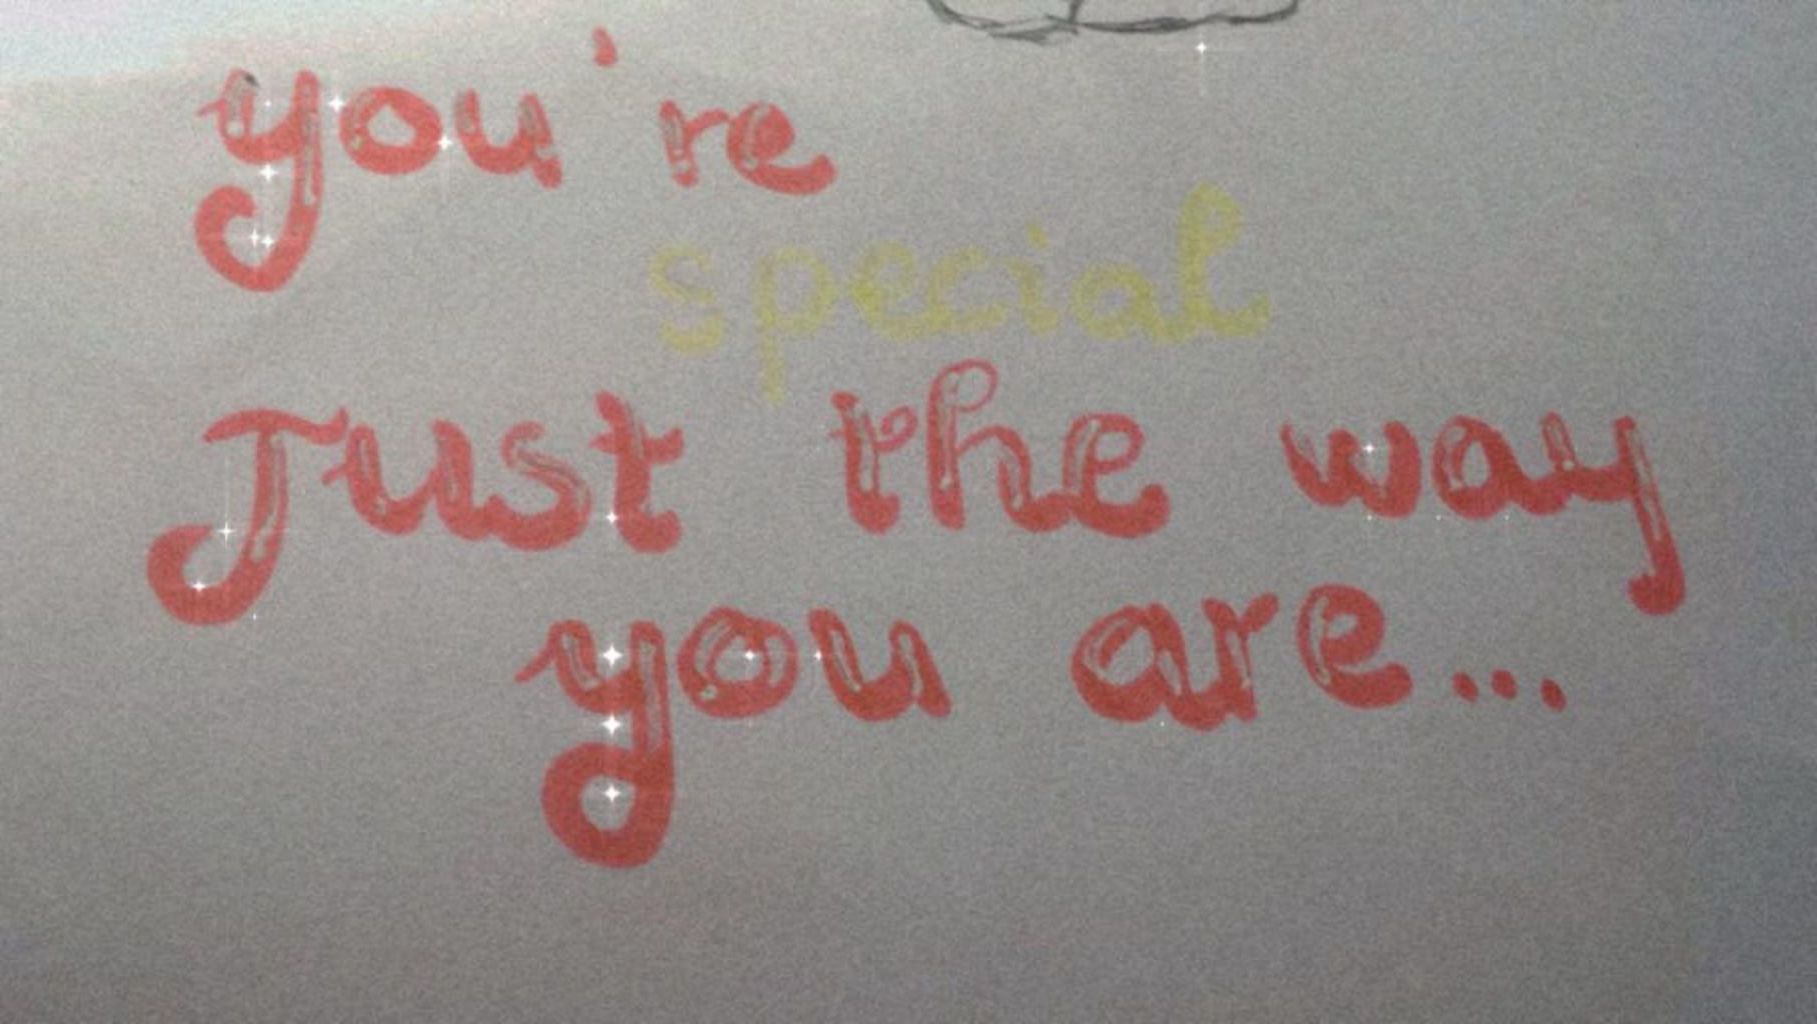 you're
special
Just the way
you are...